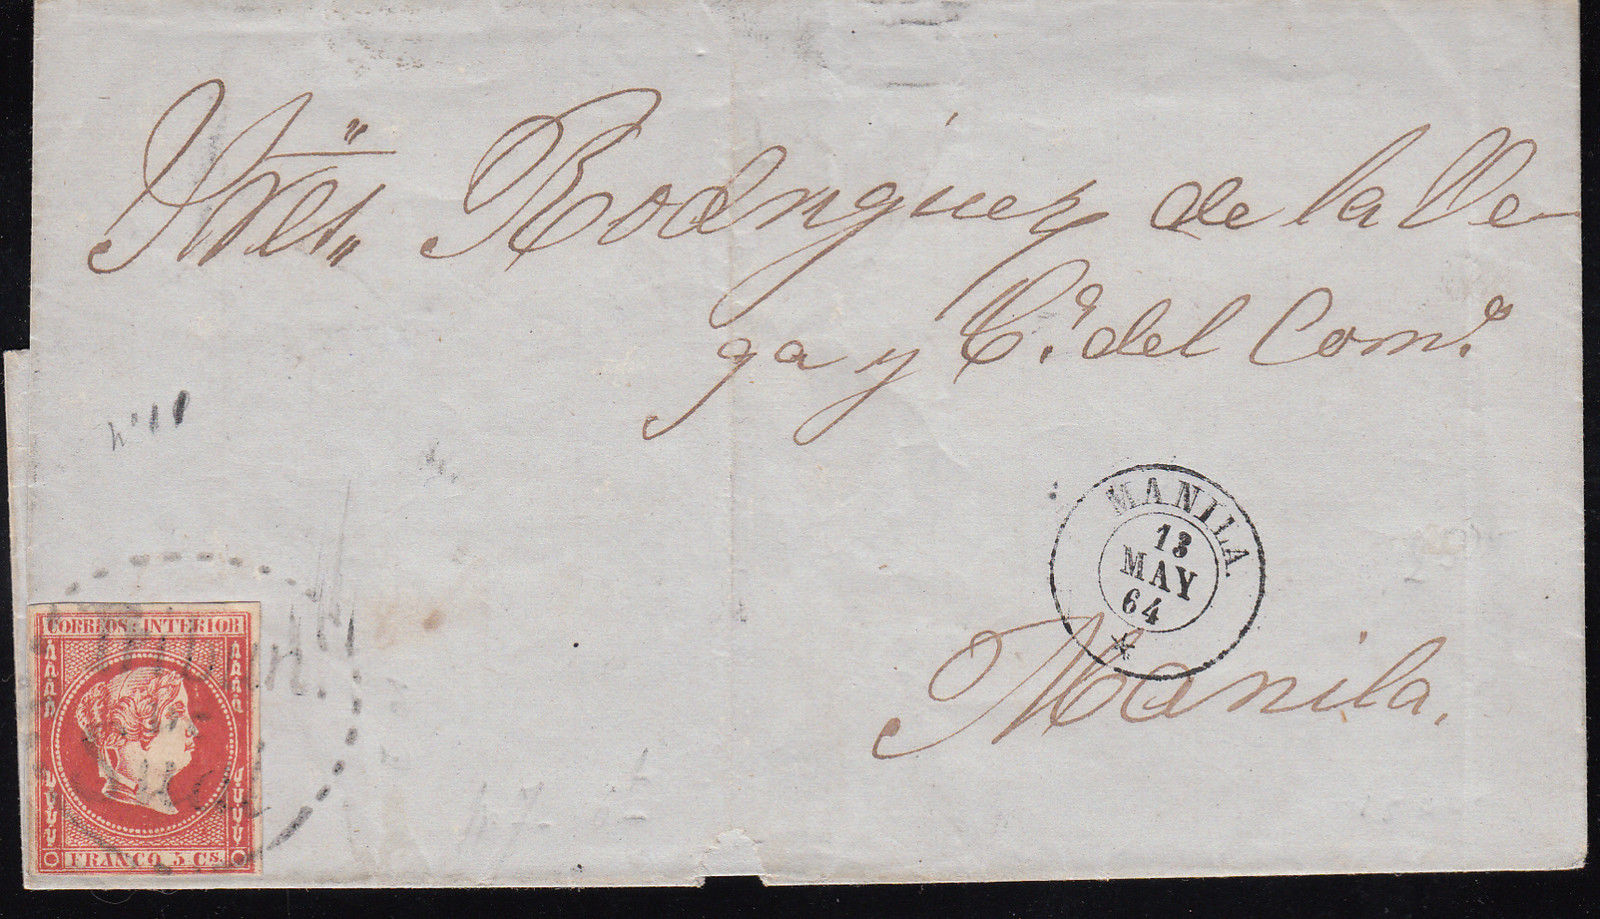 Sres. Rodriguez de la Ve-
ga y Cª. del Comº.
MANILA.
13
MAY
64
Manila.
CORREOS INTERIOR
FRANCO 5 Cs.